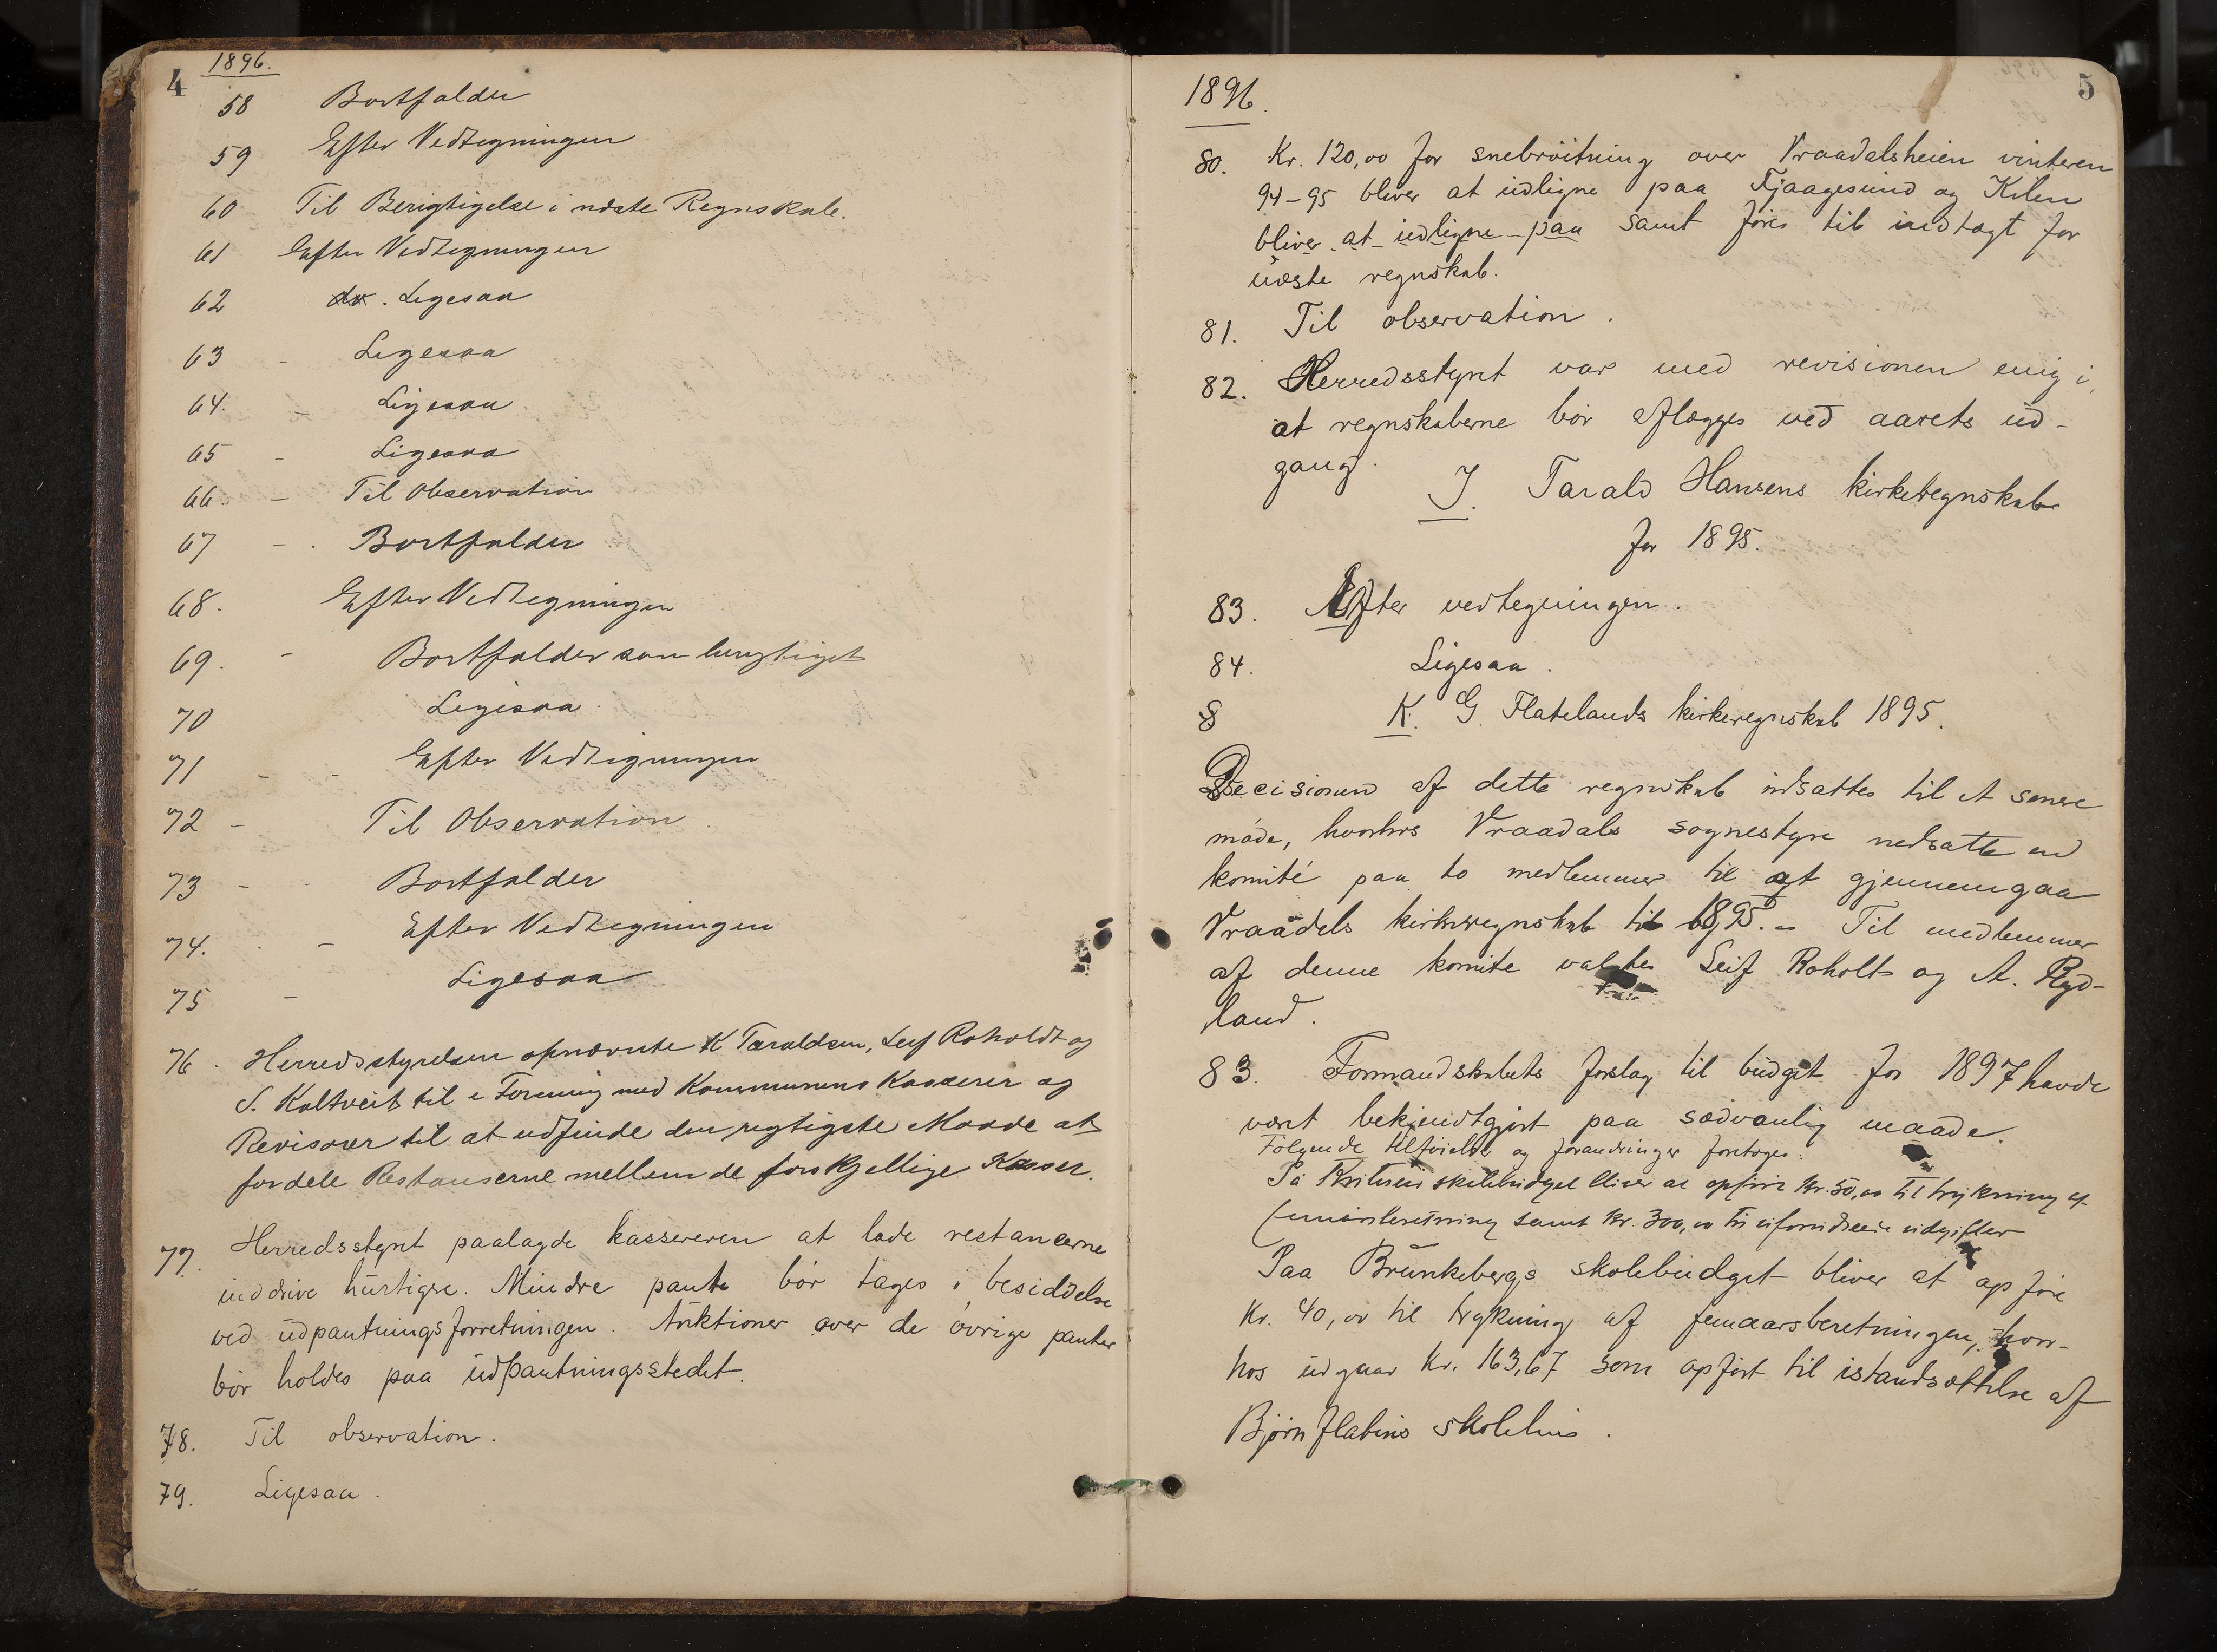 4
1896.
58 Bortfalder
59 Efter Vedtegningen
60 Til Berigtigelse i næste Regnskab.
61 Efter Vedtegningen
62 do. Ligesaa
63 - Ligesaa
64. - Ligesaa
65 - Ligesaa
66. - Til Observation
67 - . Bortfalder
68. Efter Vedtegningen
69. - Bortfalder som berigtiget
70 Ligesaa.
71 - - Efter Vedtegningen
72 - Til Observation
73 - - Bortfalder
74. - Efter Vedtegningen
75 - Ligesaa
76. Herredsstyrelsen opnævnte K Taraldsen, Leif Roholdt og
S. Kaltveit til i Forening med Kommunens Kasserer og
Revisorer til at udfinde den rigtigste Maade at
fordele Restanserne mellem de forskjellige Kasser.
77. Herredsstyret paalagde kassereren at lade restancerne
inddrive hurtigst. Mindre pante bör tages i besiddelse
ved udpantningsforretningen. Auktioner over de övrige panter
bör holdes paa udpantningsstedet.
78. Til observation.
79. Ligesaa.
5
1896.
80. Kr. 120,00 for snebröitning over Vraadalsheien vinteren
94-95 bliver at udligne paa Fjaagesund og Kilen
bliver at udligne paa samt föres til indtægt for
næste regnskab.
81. Til observation.
82. Herredsstyret var med revisionen enig i,
at regnskaberne bör aflægges ved aarets ud-
gang.
J. Tarald Hansens kirkeregnskab
for 1895.
83. Efter vedtegningen.
84. Ligesaa.
8 K. G. Flatelands kirkeregnskab 1895.
Decisionen af dette regnskab udsattes til et senere
möde, hvorhos Vraadals sognestyre nedsatte en
komité paa to medlemmer til at gjennemgaa
Vraadals kirkeregnskab til 1895. - Til medlemmer
af denne komite valgtes Leif Roholt og A. Ryd-
land.
83. Formandskabets forslag til budget for 1897 havde
været bekjendtgjort paa sædvanlig maade.
Følgende tilföielse og forandringer foretoges:
På Kviteseid skolebudget bliver at opföre kr. 50,00 til trykning af
femårsberetning samt kr. 300,00 til uforudseede udgifter
Paa Brunkebergs skolebudget bliver at opföre
kr. 40,00 til trykning af femaarsberetningen, hvor-
hos udgaar kr. 163,67 som opfört til istandsættelse af
Björnflatins skolehus.